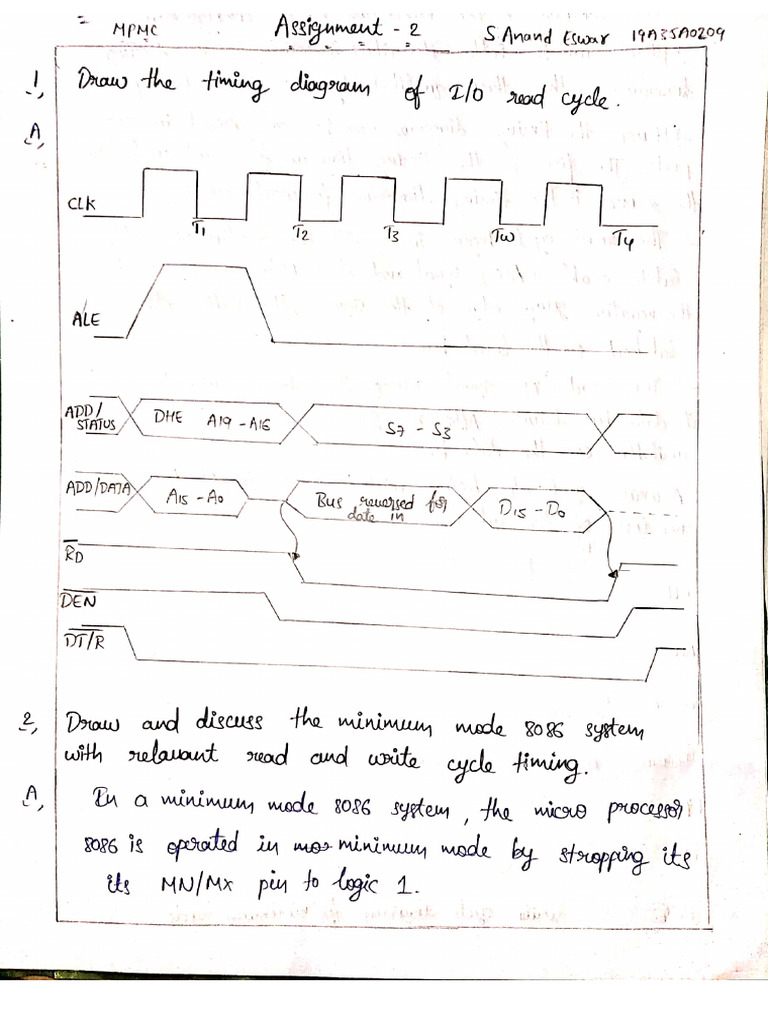 MPMC Assignment - 2 S Anand Eswar 19A35A0209
1, Draw the timing diagram of I/O read cycle.
A,
CLK
T1 T2 T3 TW T4
ALE
ADD/ STATUS DHE A19 - A16 S7 - S3
ADD/DATA A15 - A0 Bus reversed for date in D15 - D0
RD
DEN
DT/R
2, Draw and discuss the minimum mode 8086 system
with relavant read and write cycle timing.
A, In a minimum mode 8086 system, the micro processor
8086 is operated in minimum mode by stropping its
its MN/MX pin to logic 1.